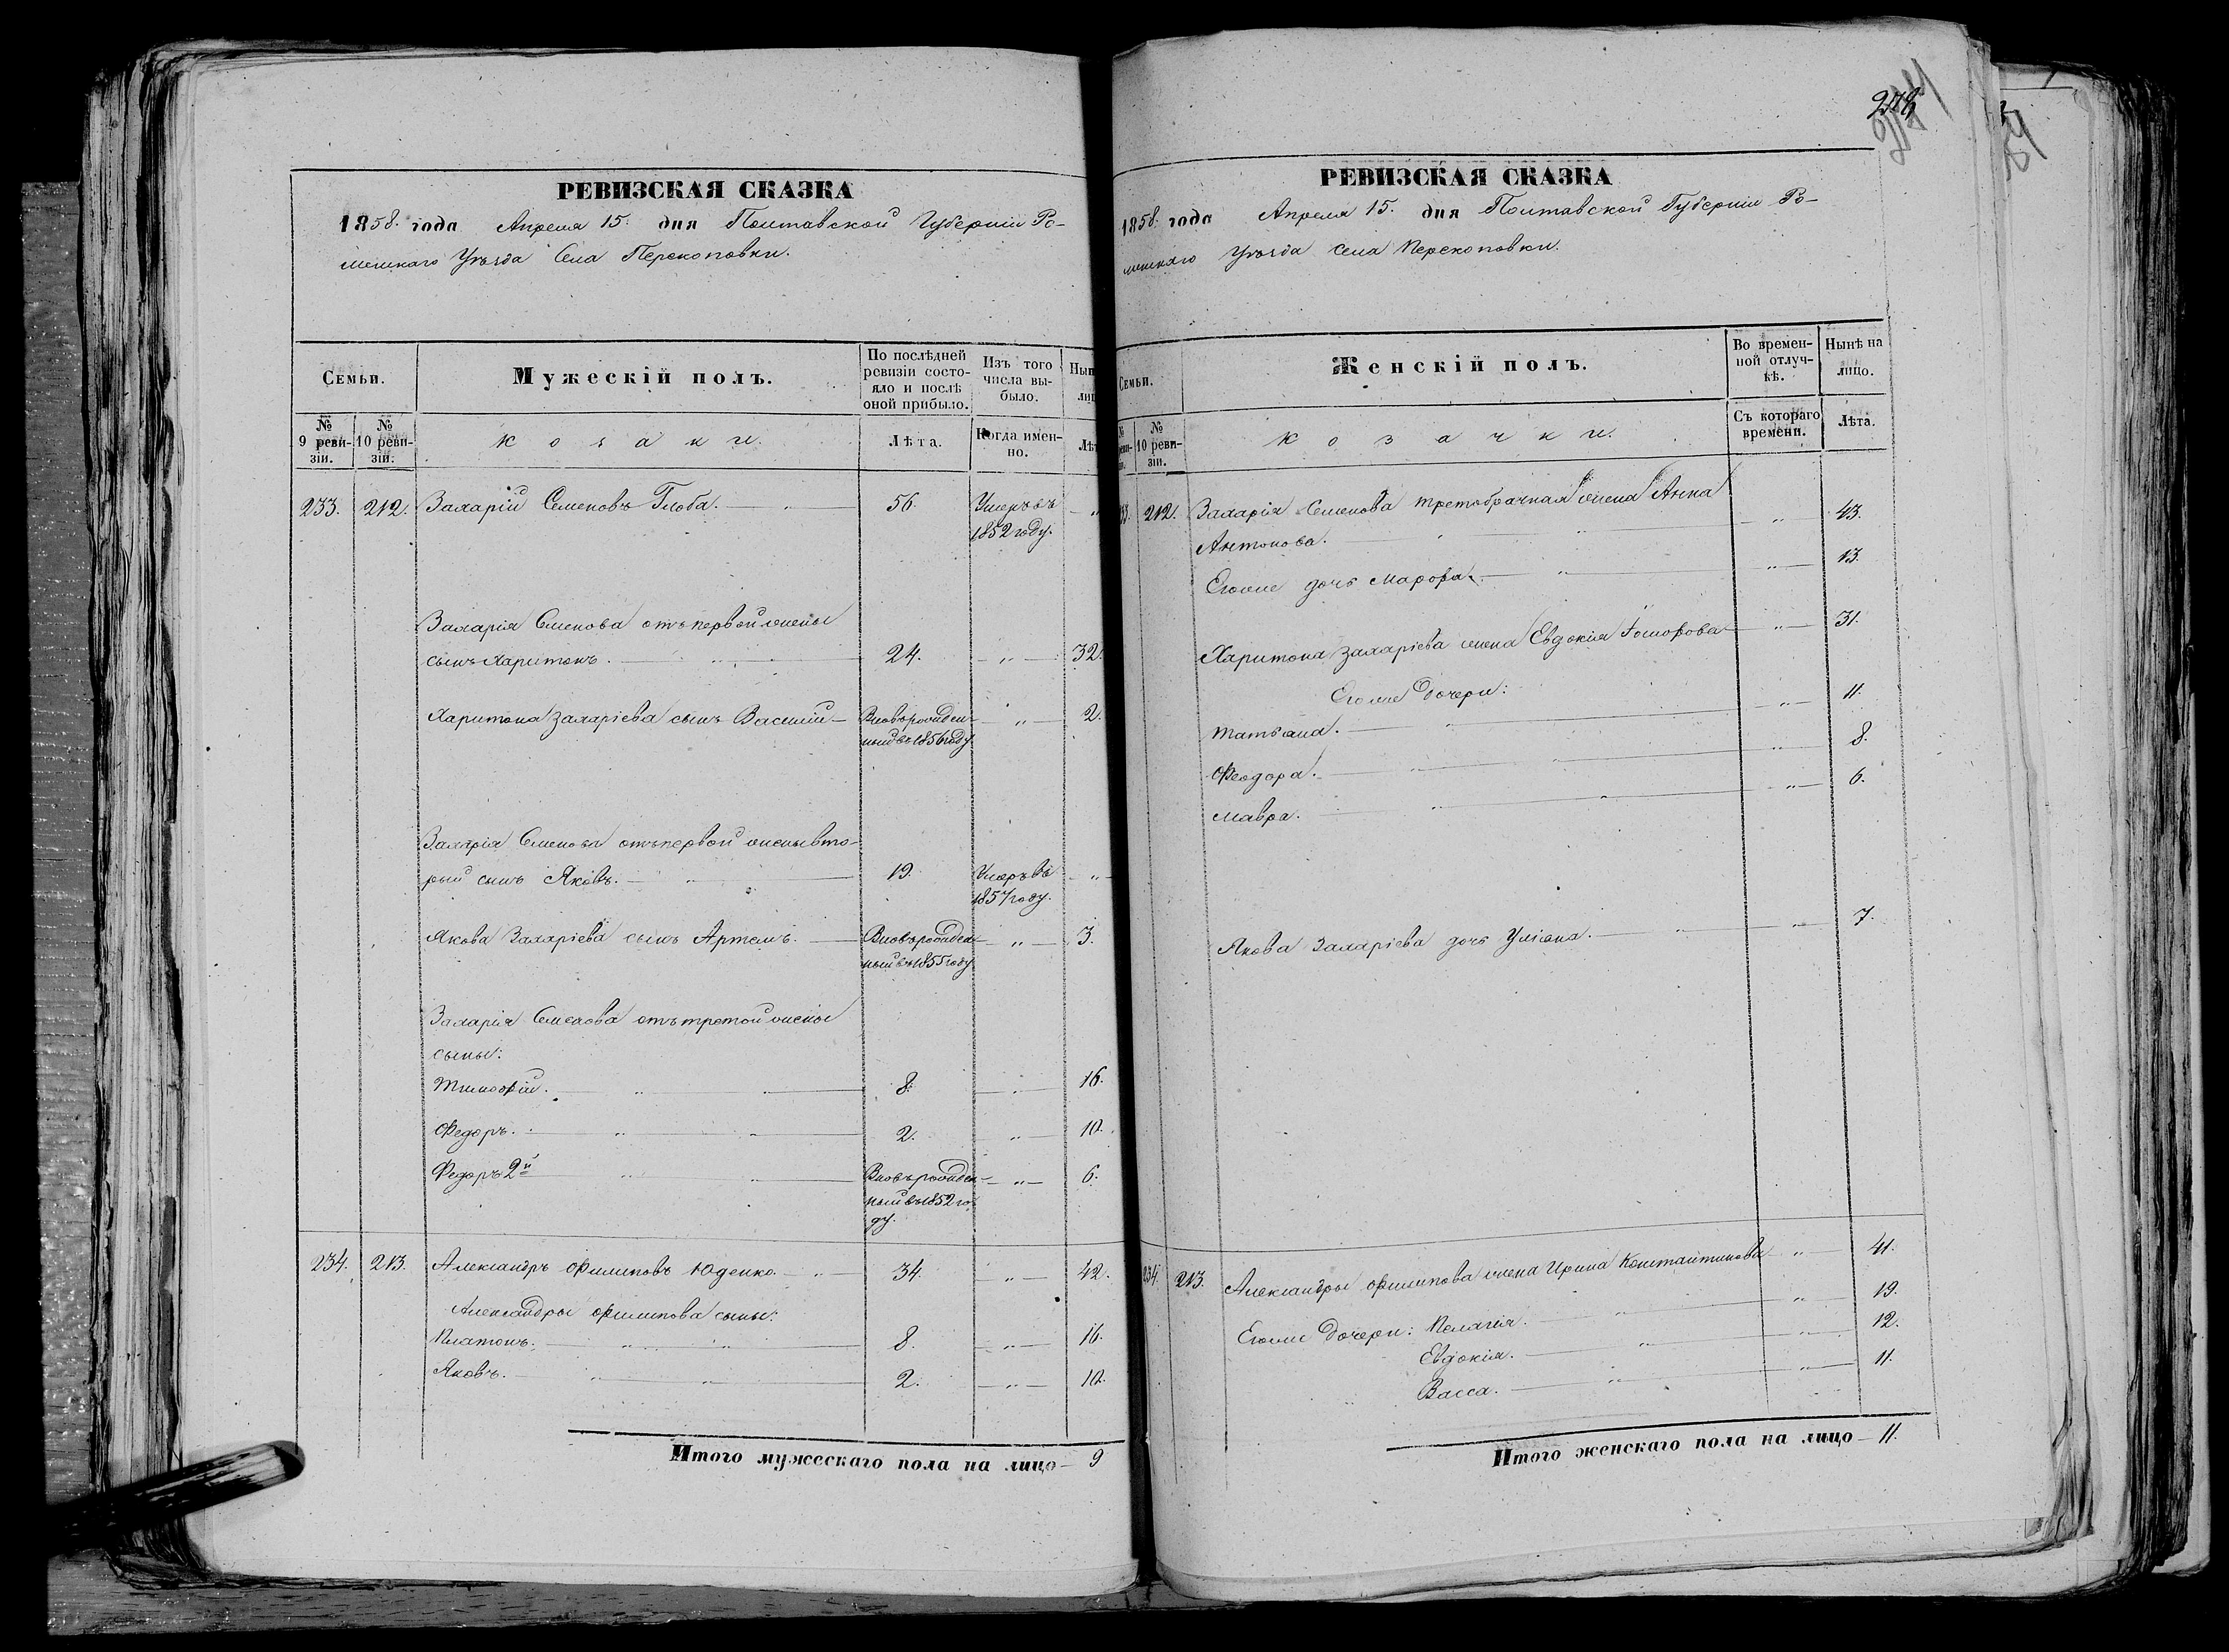 РЕВИЗСКАЯ СКАЗКА
1858. года Апреля 15. дня Полтавской Губерніи Ро-
менскаго Уѣзда Села Перекоповки.
Семьи.
Мужескій полъ.
По послѣдней ревизіи состо-яло и послѣ оной прибыло.
Изъ того числа вы-было.
№ 9 реви-зіи.
№ 10 реви-зіи.
Козаки.
Лѣта.
Когда имен-но.
233. 212. Захарій Семеновъ Глоба. 56. Умеръ въ
1852 году.
Захарія Семенова отъ первой жены
сынъ Харитонъ. 24. " 32.
Харитона Захаріева сынъ Василій Вновърожден- " 2.
ный въ 1856 году
Захарія Семенова отъ первой жены вто-
рый сынъ Яковъ. 19. Умеръ въ "
1857 году.
Якова Захаріева сынъ Артемъ. Вновърожден- " 3.
ный въ 1855 году
Захарія Семенова отъ третой жены
сыны:
Тимофій. 8. " 16.
Федоръ. 2. " 10.
Федоръ 2й Вновърожден- " 6.
ный въ 1852 го-
ду.
234. 213. Александръ Филиповъ Юденко. 34. " 42.
Александры Филипова сыны:
Платонъ. 8. " 16.
Яковъ. 2. " 10.
Итого мужескаго пола на лицо 9
РЕВИЗСКАЯ СКАЗКА
1858. года Апреля 15. дня Полтавской Губерніи Ро-
менскаго Уѣзда Села Перекоповки.
Семьи.
Женскій полъ.
Во времен-ной отлуч-кѣ.
Нынѣ на лицо.
№ 10 реви-зіи.
Козачки.
Съ котораго времени.
Лѣта.
212. Захарія Семенова третобрачная жена Анна
Антонова. " 43.
Егоже дочь Марфа. " 13.
Харитона Захаріева жена Евдокія Тимофова " 31.
Егоже дочери:
Татьана. " 11.
Феодора. " 8.
Мавра. " 6.
Якова Захаріева дочь Уліана. " 7.
234. 213. Александры Филипова жена Ирина Константинова " 41.
Егоже дочери: Пелагія. " 19.
Евдокія. " 12.
Васса. " 11.
Итого женскаго пола на лицо 11.